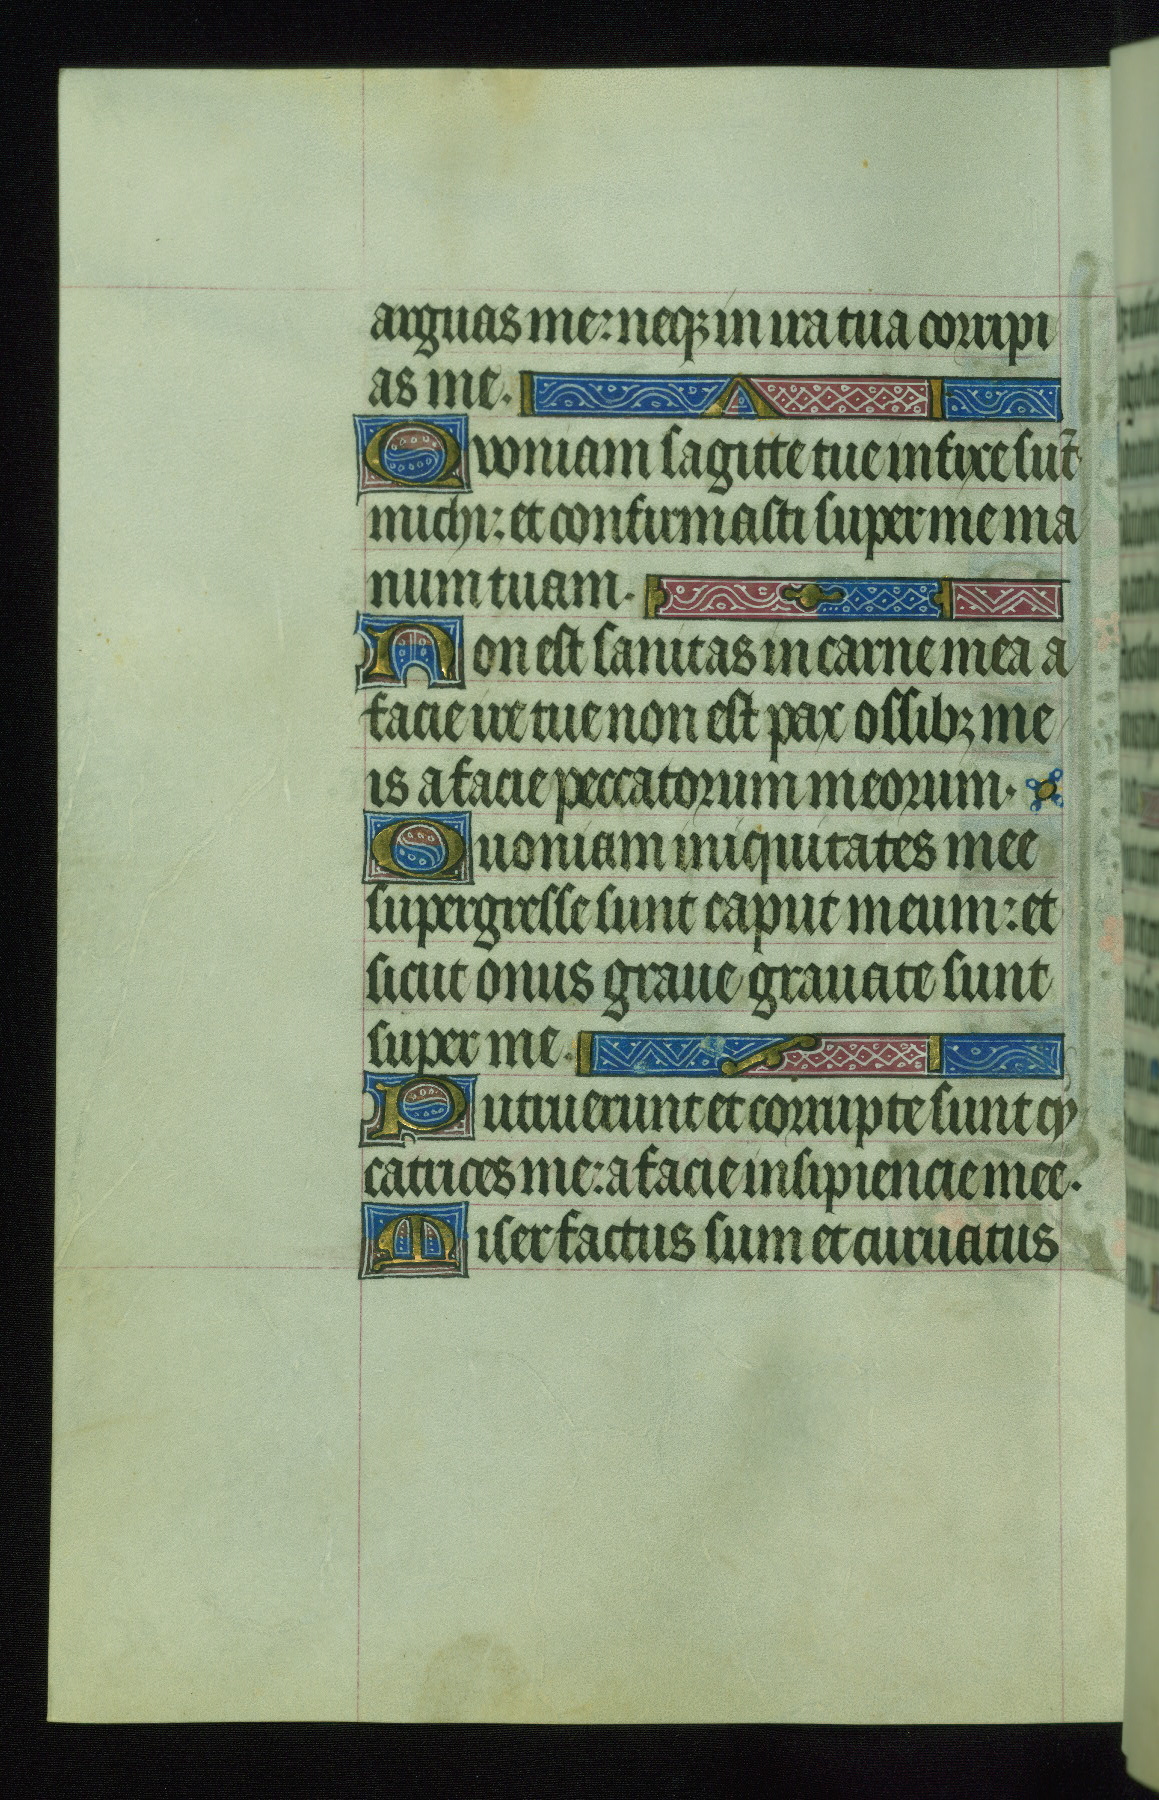 arguas me: neqꝫ in ira tua corripi
as me.
Quoniam sagitte tue infixe sūt
michi: et confirmasti super me ma
num tuam.
Non est sanitas in carne mea a
facie ire tue non est pax ossibꝫ me
is a facie peccatorum meorum.
Quoniam iniquitates mee
supergresse sunt caput meum: et
sicut onus graue grauate sunt
super me.
Putruerunt et corrupte sunt cy
catrices me: a facie insipiencie mee.
Miser factus sum et curuatus